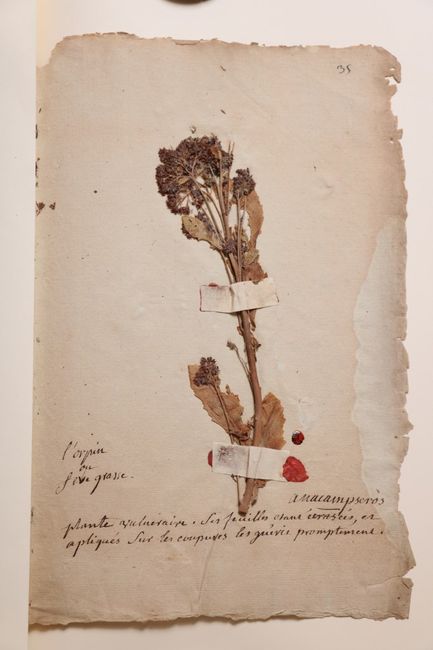 35
l'orpin
ou
feve grasse.
anacampseros
plante vulneraire. Ses feuilles etant écrasées, et
apliqués Sur les coupures les guérit promptement.